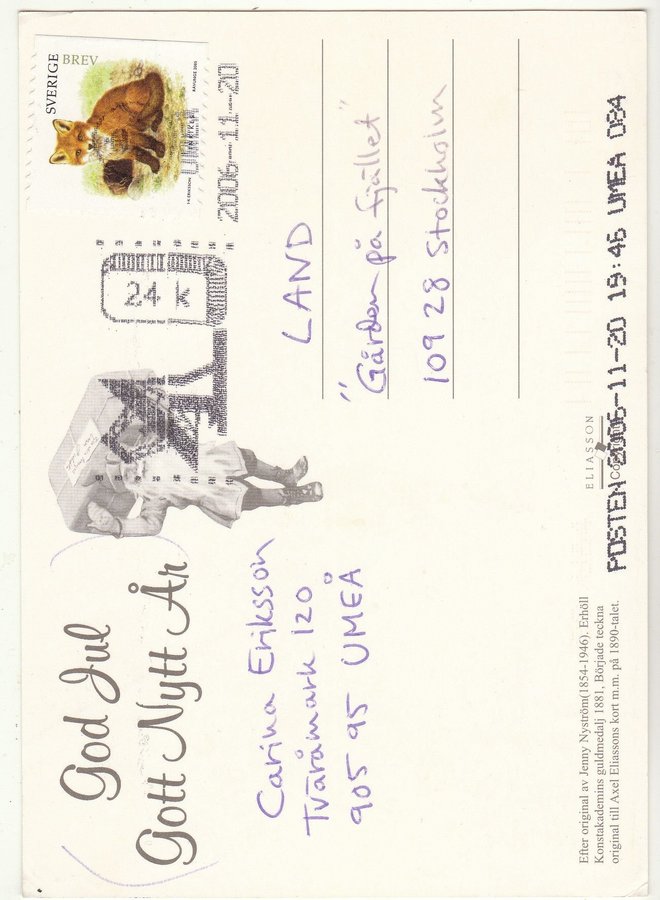 God Jul
Gott Nytt År
Carina Eriksson
Tväråmark 120
905 95 UMEÅ
SVERIGE BREV
2006-11-20
24 k
LAND
"Gården på fjället"
109 28 Stockholm
ELIASSON
POSTEN 2006-11-20 19:46 UMEA D84
Efter original av Jenny Nyström(1854-1946). Erhöll
Konstakademins guldmedalj 1881, Började teckna
original till Axel Eliassons kort m.m. på 1890-talet.